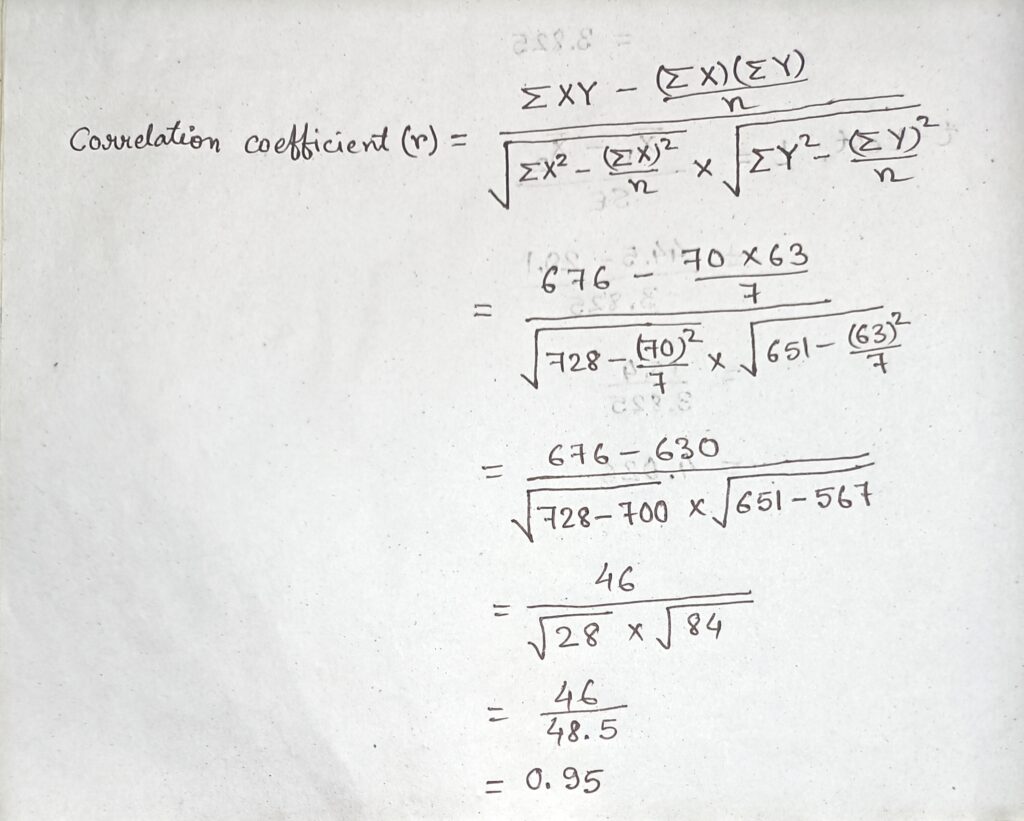 Correlation coefficient (r) = ΣXY − (ΣX)(ΣY)/n / √(ΣX² − (ΣX)²/n) × √(ΣY² − (ΣY)²/n)
= 676 − 70 × 63/7 / √(728 − (70)²/7) × √(651 − (63)²/7)
= 676 − 630 / √(728 − 700) × √(651 − 567)
= 46 / √28 × √84
= 46 / 48.5
= 0.95